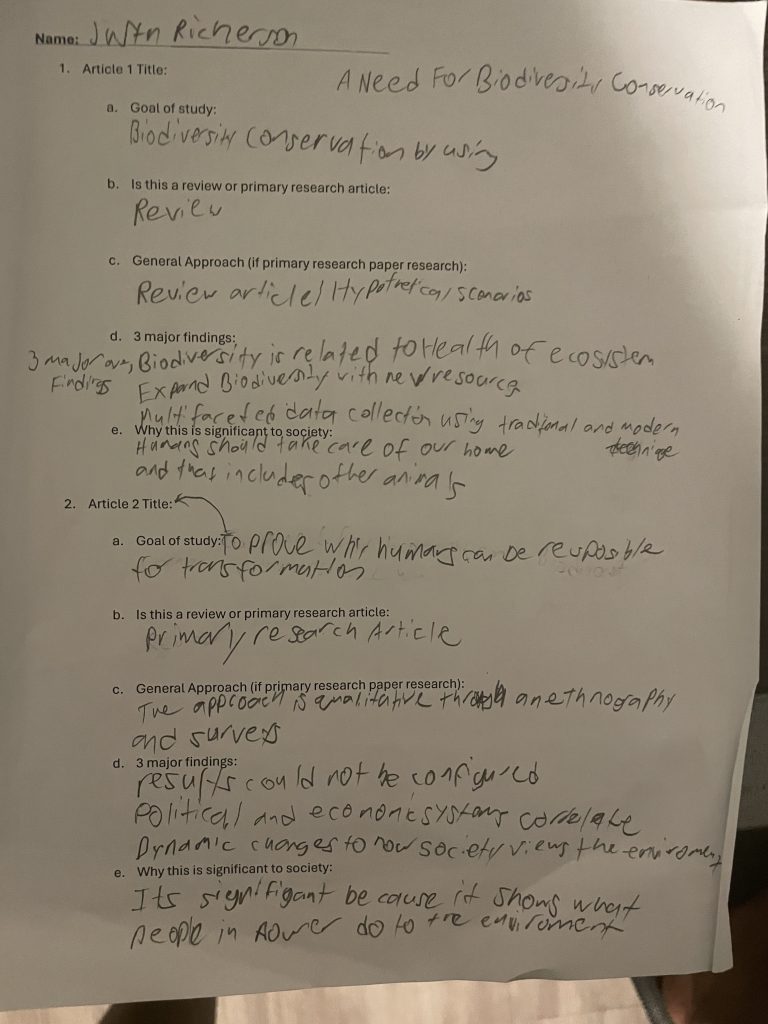 Name: Justn Richerson
1. Article 1 Title:
A Need For Biodiversity Conservation
a. Goal of study:
Biodiversity Conservation by using
b. Is this a review or primary research article:
Review
c. General Approach (if primary research paper research):
Review article/Hypothetical scenarios
d. 3 major findings:
3 major Findings Biodiversity is related to Health of ecosistem
Expand Biodiversity with new resource
Multifaceted data collection using traditional and modern technique
e. Why this is significant to society:
Humans should take care of our home
and that includes other animals
2. Article 2 Title:
a. Goal of study: To prove why humans can be resposible
for transformation
b. Is this a review or primary research article:
Primary research Article
c. General Approach (if primary research paper research):
The approach is qualitative through an ethnography
and surveys
d. 3 major findings:
results could not be configured
Political and economic systems correlate
Dynamic changes to how society views the enviroment
e. Why this is significant to society:
Its signifigant because it shows what
people in Power do to the enviroment